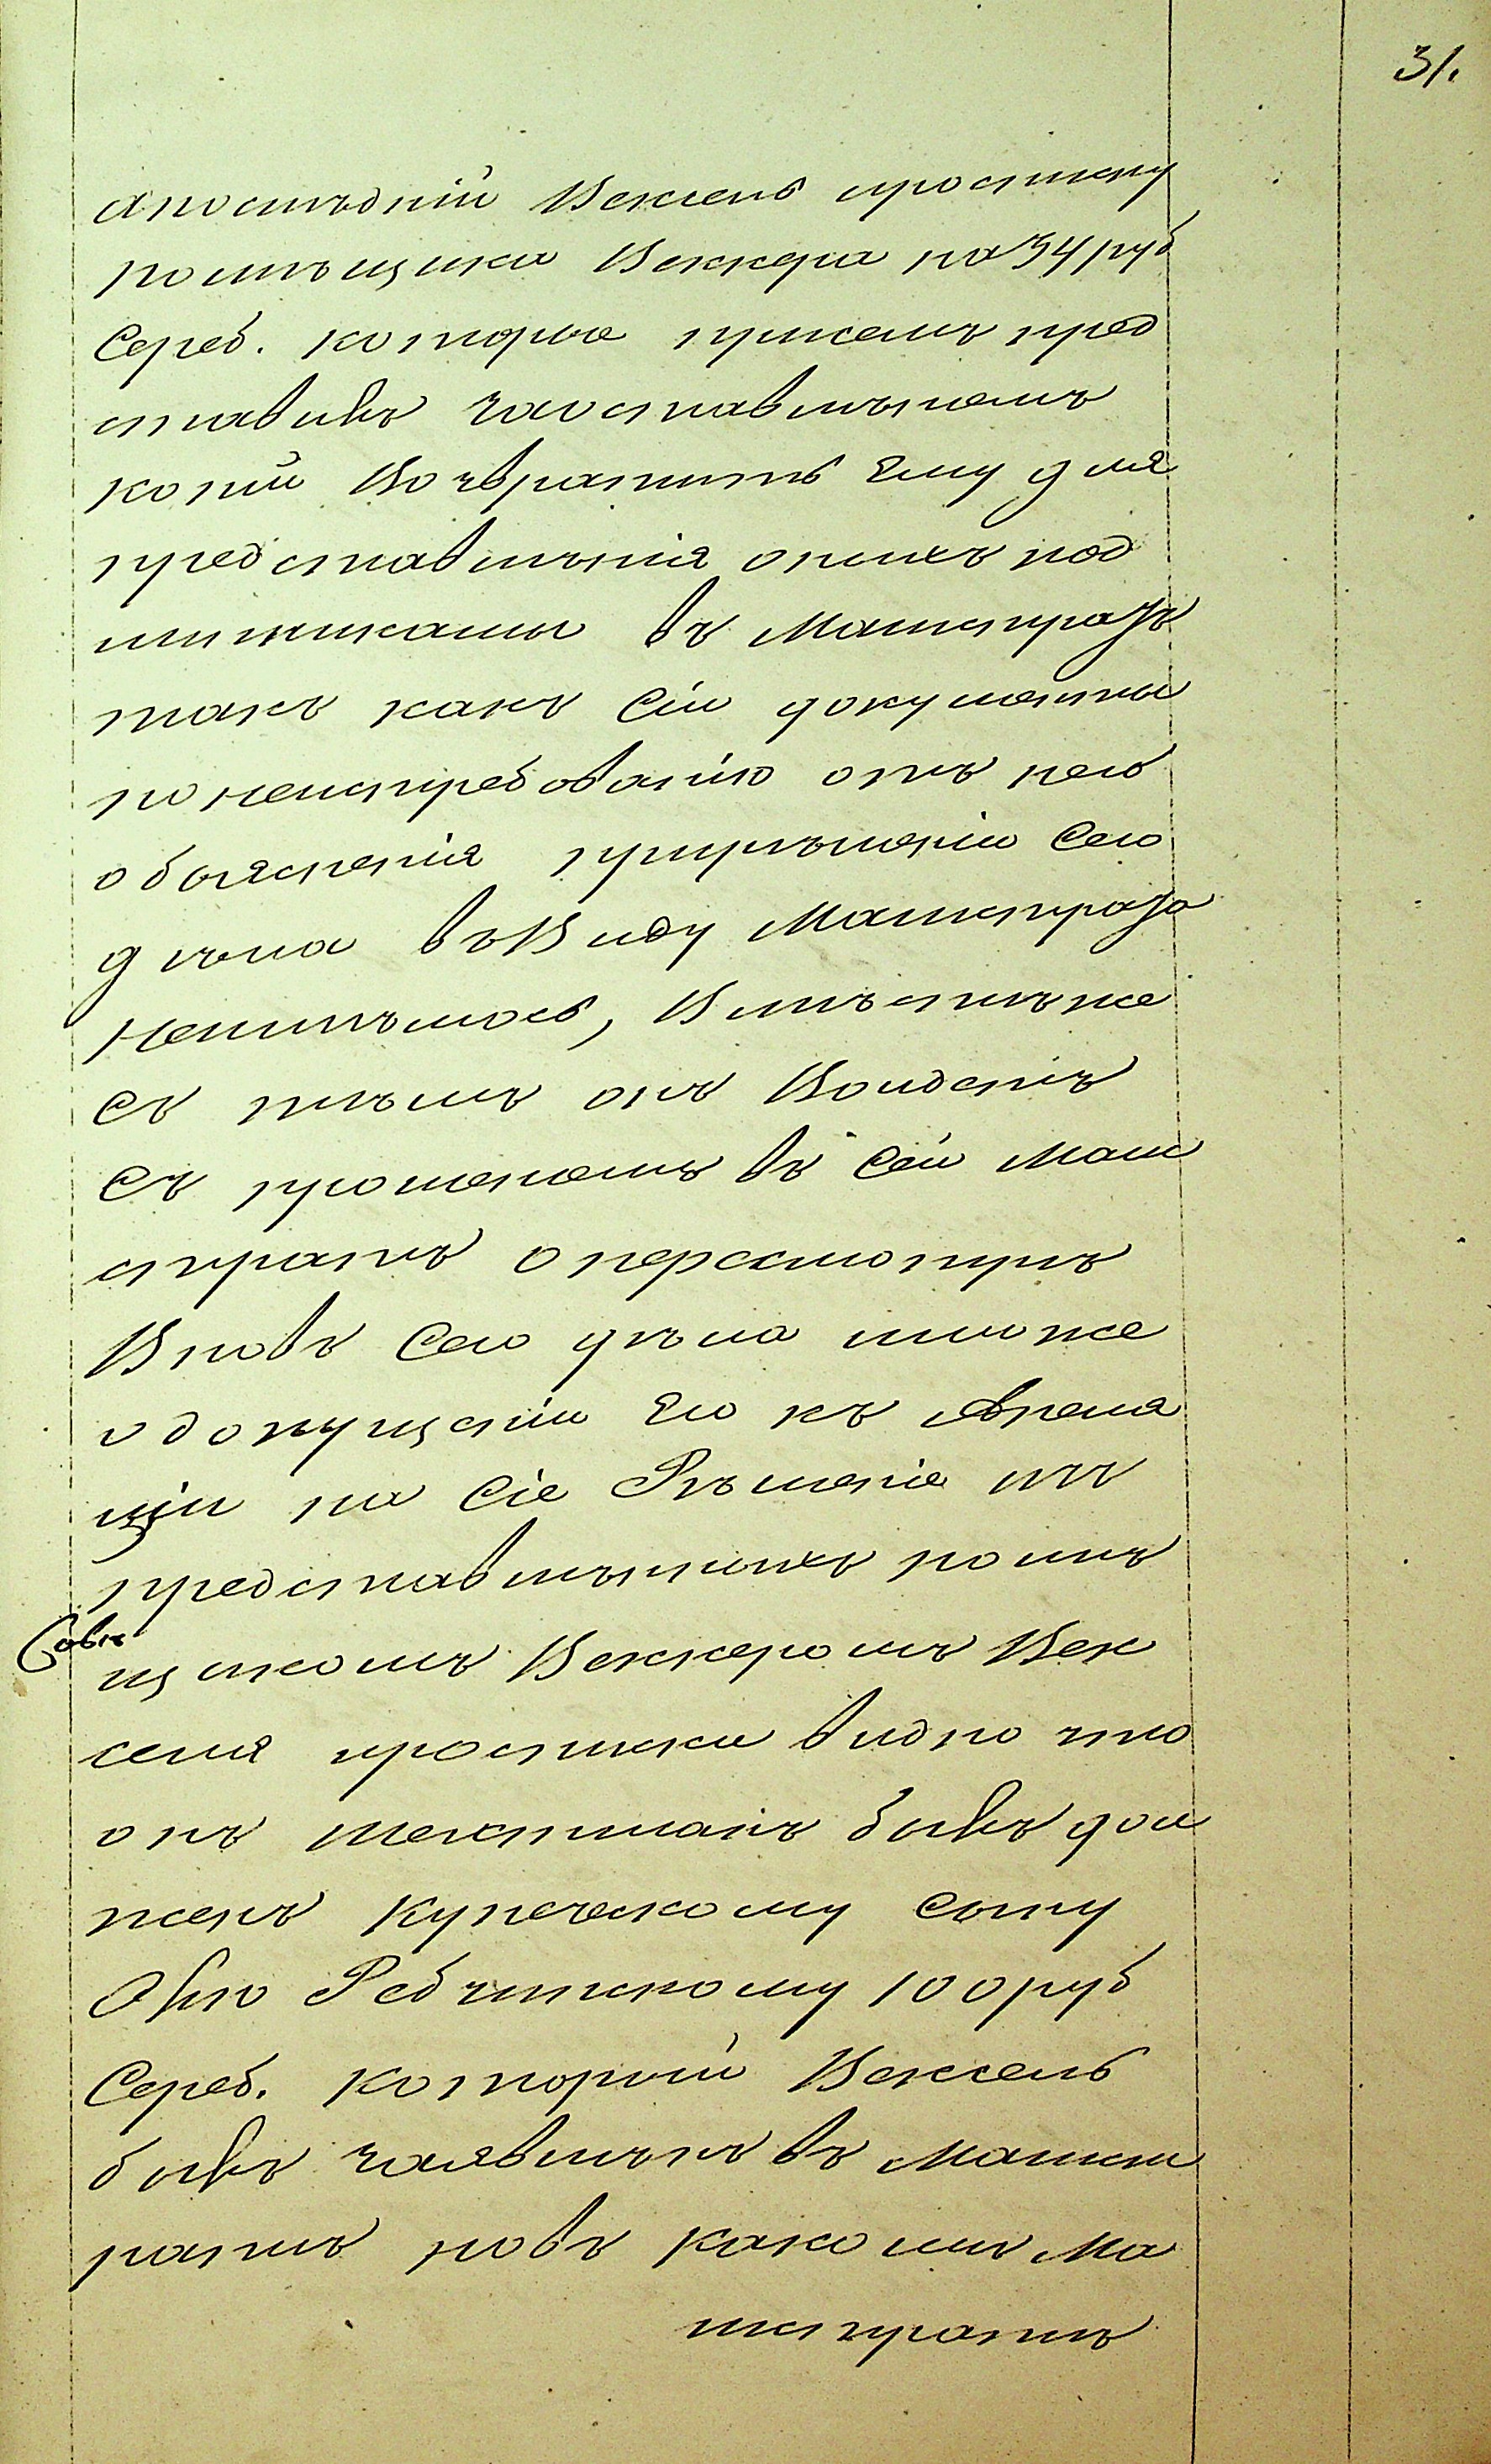 31.
а последній Вексель простику
помѣщика Веккера на 34 руб
Сереб. которые прижемъ пред
ставивъ заоставлѣнемъ
копіи Возвратить Ему для
представлѣнія оныхъ под
линниками въ Магистратъ
такъ какъ Сіи документы
понеистребованію отъ него
объясненія прирѣшеніи Сего
дѣла въ Виду Магистрата
неимѣлось, Вмѣстѣже
Съ тѣмъ онъ Войденіъ
Съ прошенемъ въ Сей Маги
стратъ опересмотрѣ
Вновь Сего дѣла илиже
одопущеніи Его къ Апеля
ціи на Сіе Рѣшеніе изъ
представлѣнныхъ помѣ
щикомъ Веккеромъ Век
селя простики видно что
онъ шекспиаръ бывъ дол
женъ купеческому сыну
Овію Ребчинскому 100 руб
Сереб. который Вексель
бывъ заявлѣнъ въ Магист
ратѣ новъ какомъ Ма
гистратѣ